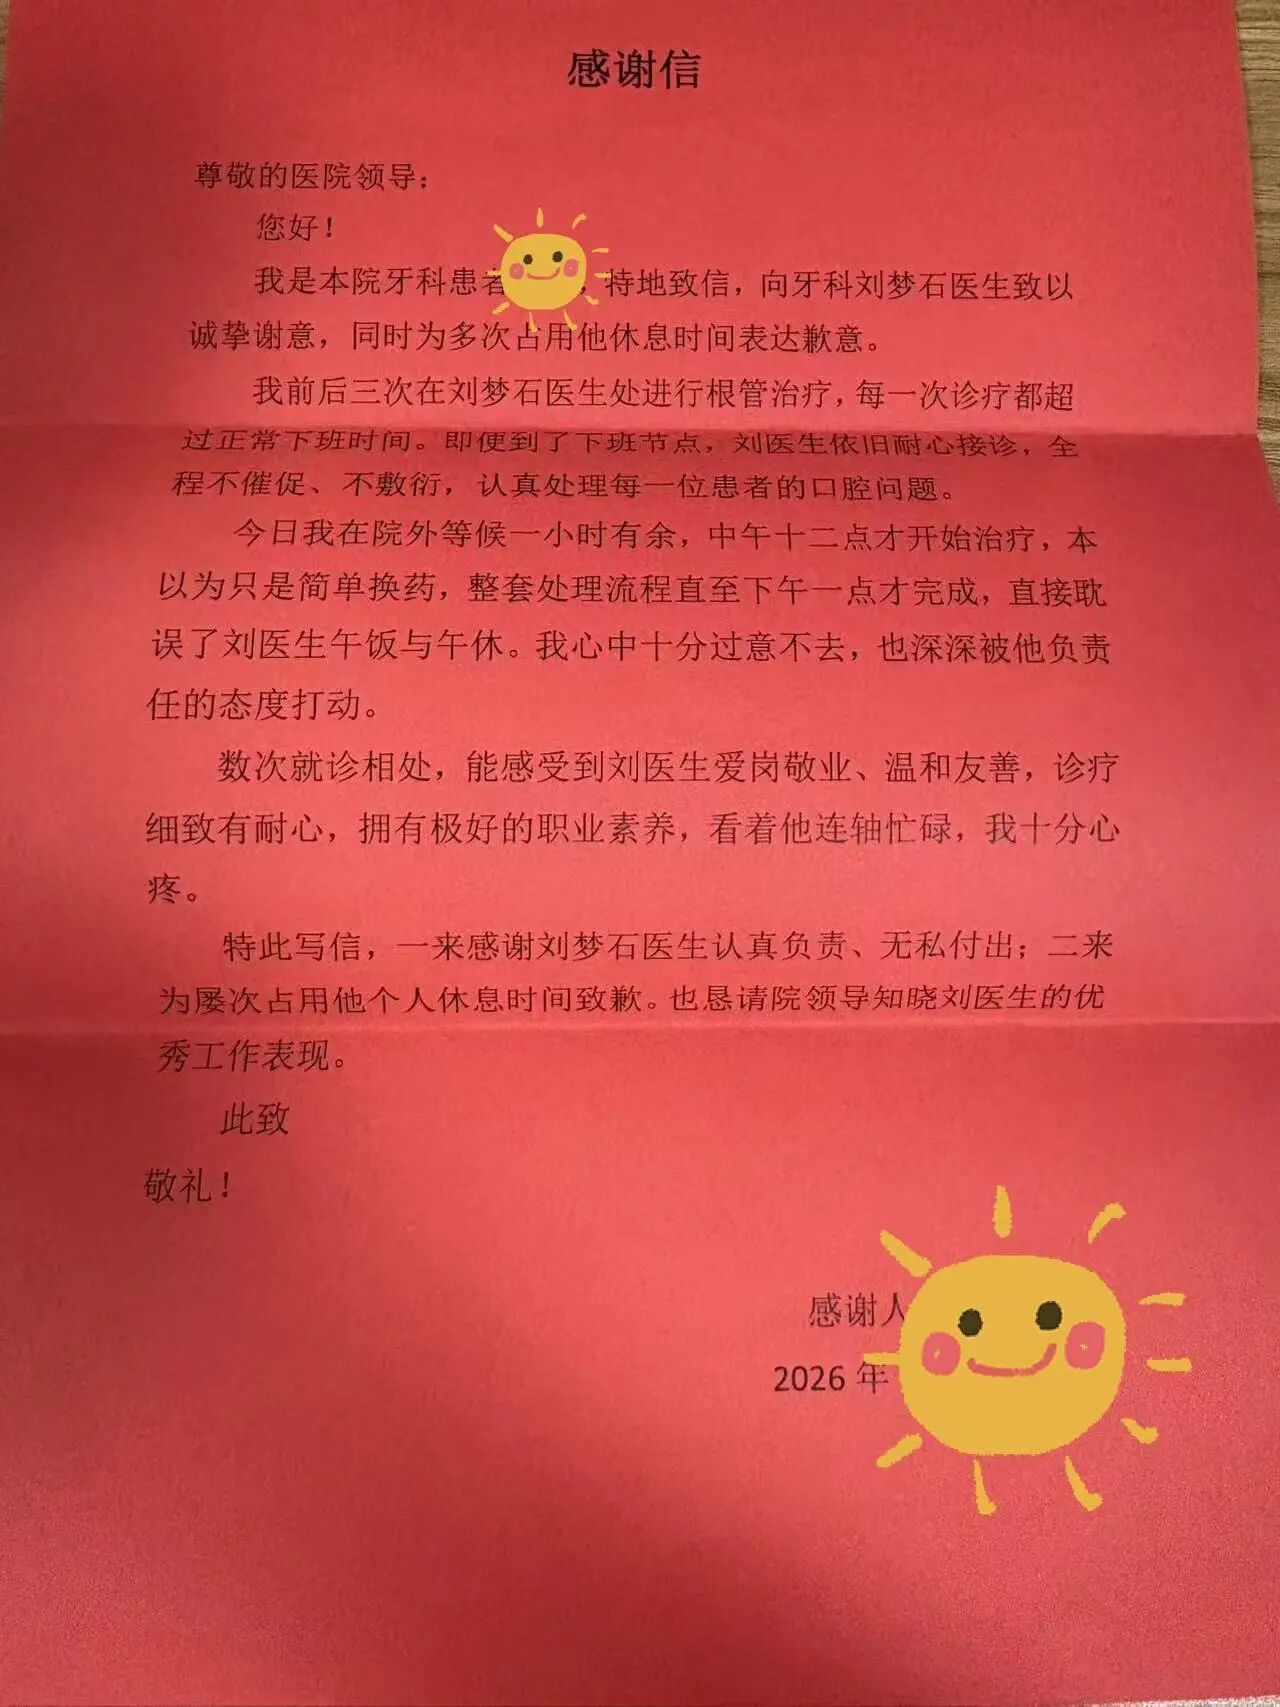 感谢信
尊敬的医院领导：
您好！
我是本院牙科患者，特地致信，向牙科刘梦石医生致以
诚挚谢意，同时为多次占用他休息时间表达歉意。
我前后三次在刘梦石医生处进行根管治疗，每一次诊疗都超
过正常下班时间。即便到了下班节点，刘医生依旧耐心接诊，全
程不催促、不敷衍，认真处理每一位患者的口腔问题。
今日我在院外等候一小时有余，中午十二点才开始治疗，本
以为只是简单换药，整套处理流程直至下午一点才完成，直接耽
误了刘医生午饭与午休。我心中十分过意不去，也深深被他负责
任的态度打动。
数次就诊相处，能感受到刘医生爱岗敬业、温和友善，诊疗
细致有耐心，拥有极好的职业素养，看着他连轴忙碌，我十分心
疼。
特此写信，一来感谢刘梦石医生认真负责、无私付出；二来
为屡次占用他个人休息时间致歉。也恳请院领导知晓刘医生的优
秀工作表现。
此致
敬礼！
感谢人
2026 年